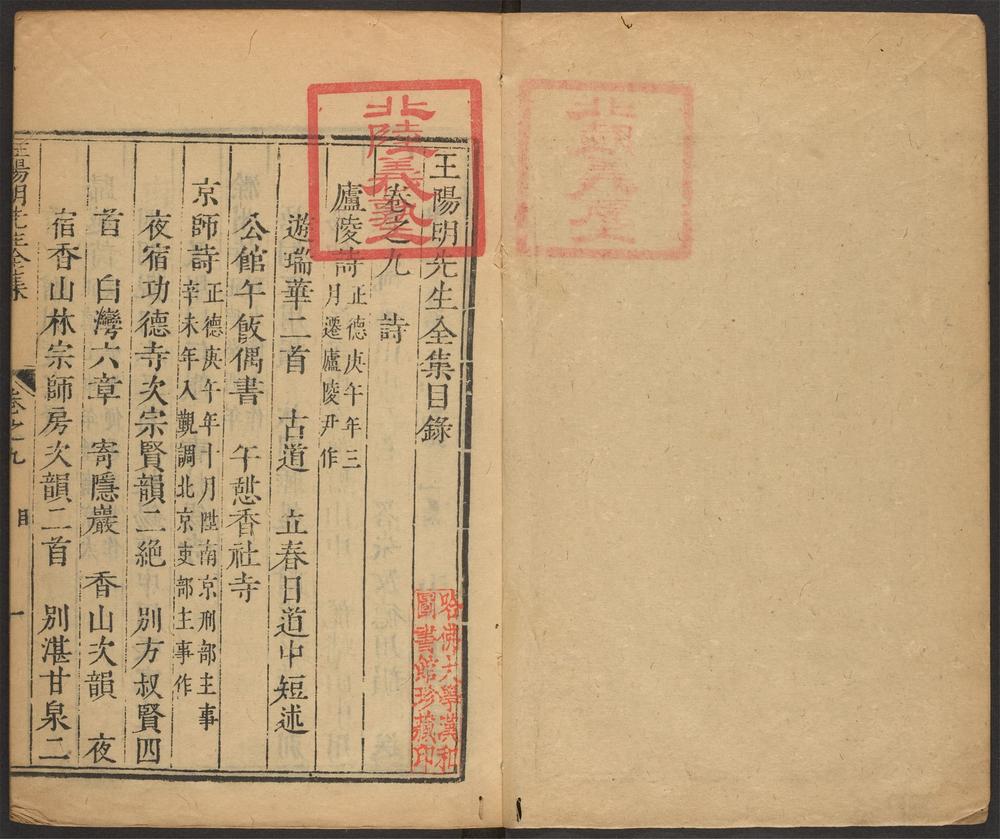 王陽明先生全集目錄
卷之九 詩
廬陵詩 正德庚午年三
月遷廬陵尹作
遊瑞華二首 古道 立春日道中短述
公館午飯偶書 午憇香社寺
京師詩 正德庚午年十月陞南京刑部主事
辛未年入覲調北京吏部主事作
夜宿功德寺次宗賢韻二絶 別方叔賢四
首 白灣六章 寄隱巖 香山次韻 夜
宿香山林宗師房次韻二首 別湛甘泉二
王陽明先生全集 卷之九 目 一
北陸義塾
哈佛大學漢和
圖書館珍藏印